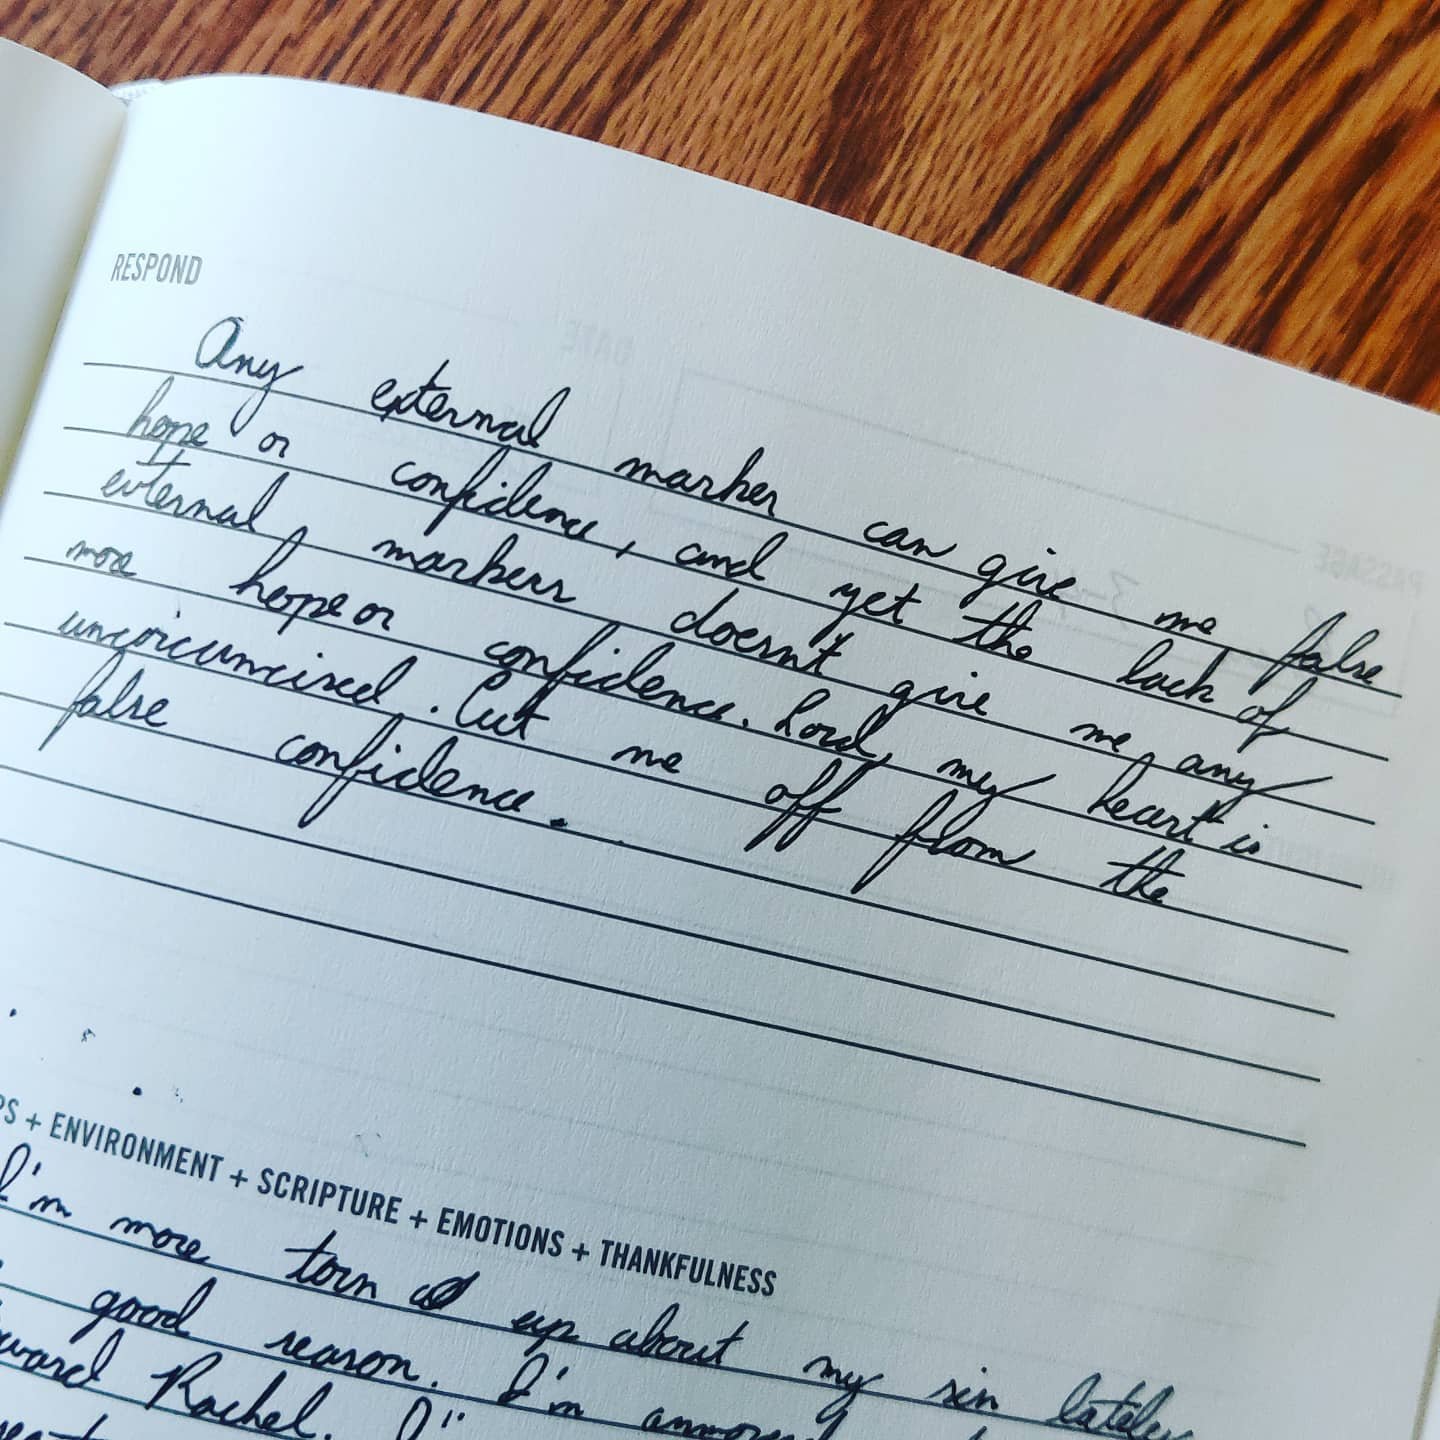 RESPOND
Any external marker can give me false
hope or confidence, and yet the lack of
external markers doesn't give me any
more hope or confidence. Lord, my heart is
uncircumcised. Cut me off from the
false confidence.
PS + ENVIRONMENT + SCRIPTURE + EMOTIONS + THANKFULNESS
I'm more torn up about my sin lately
good reason. I'm
Rachel. I